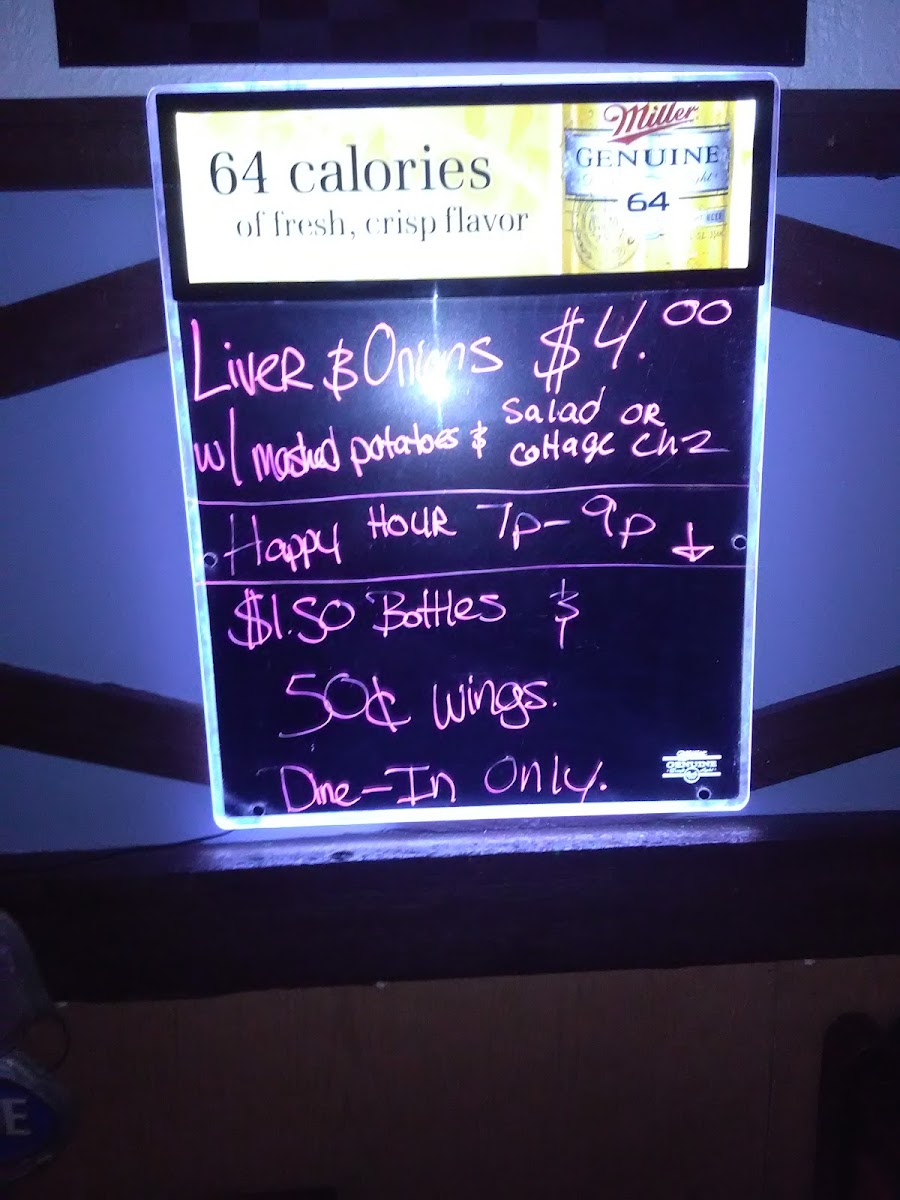 64 calories
of fresh, crisp flavor
Miller
GENUINE
64
Liver & Onions $4.00
w/ mashed potatoes & salad or
cottage ch z
Happy Hour 7p-9p ↓
$1.50 Bottles &
50¢ wings.
Dine-In Only.
GENUINE
E